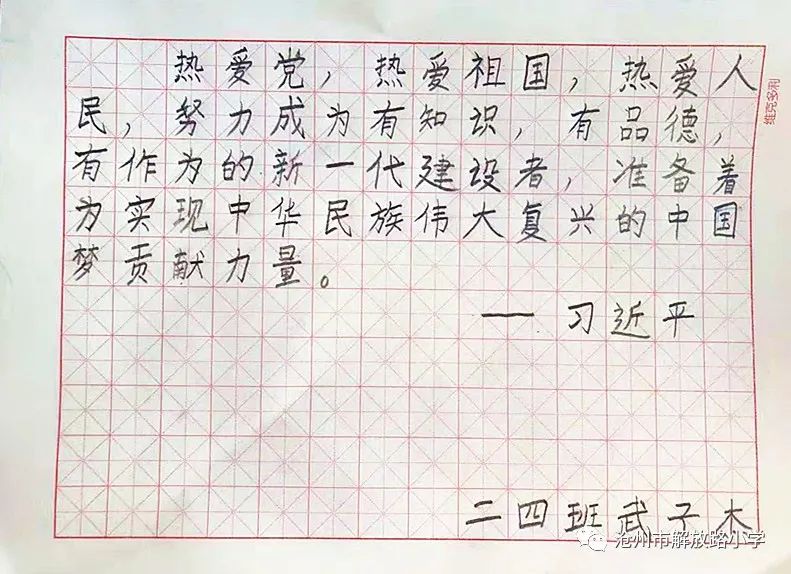 热爱党，热爱祖国，热爱人
民，努力成为有知识，有品德，
有作为的新一代建设者，准备着
为实现中华民族伟大复兴的中国
梦贡献力量。
——习近平
二四班武子木
维克多利
沧州市解放路小学